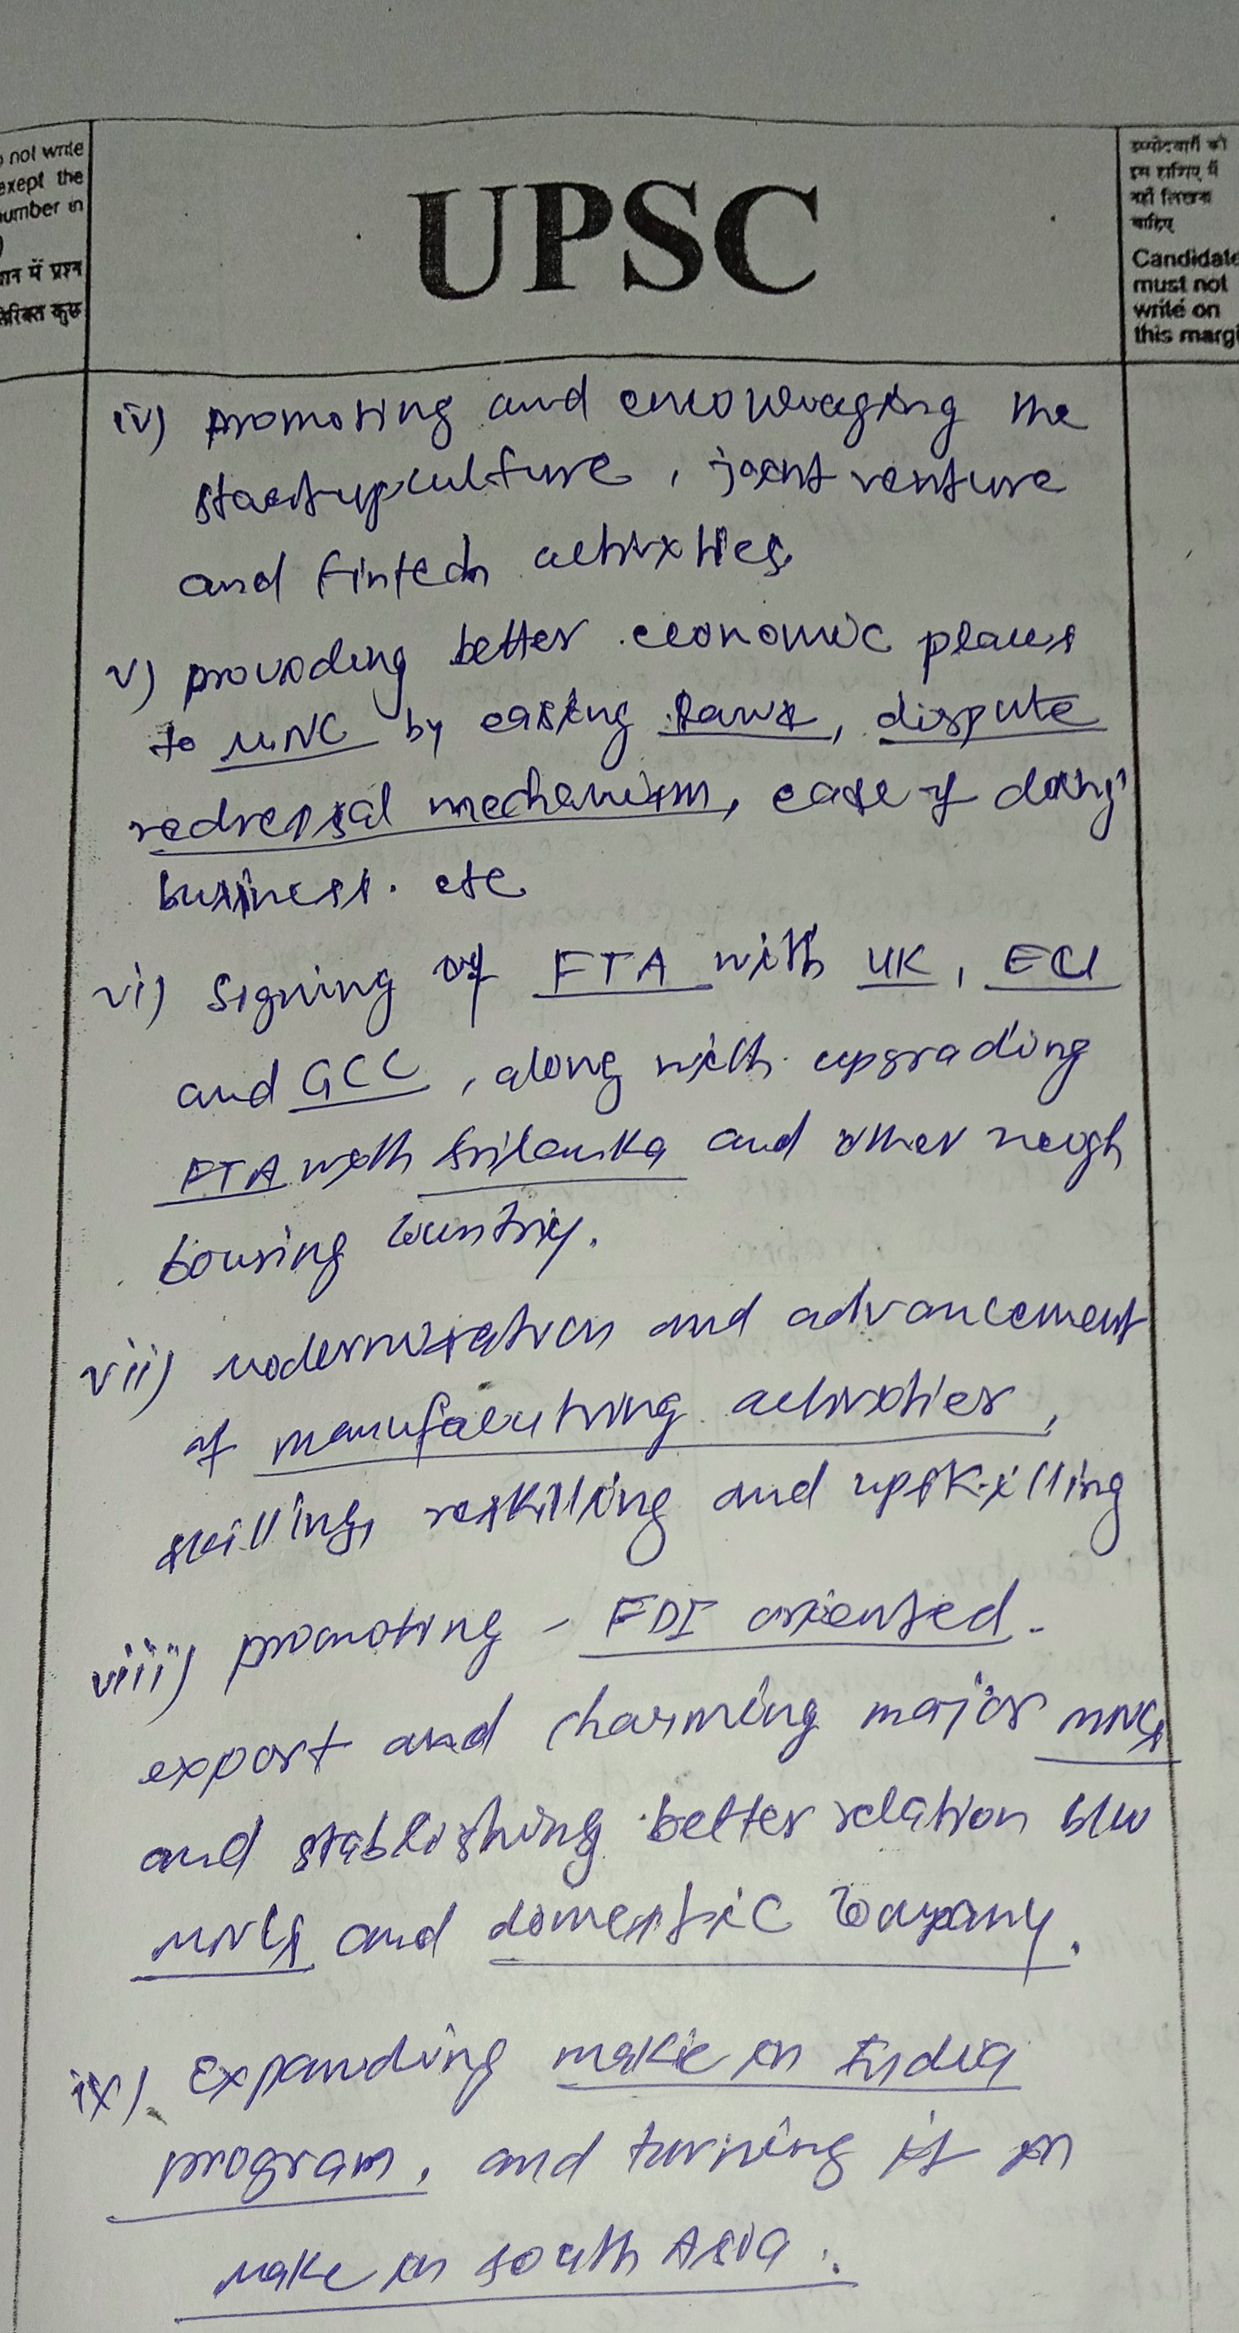 not write
exept the
number in
)
में प्रश्न
कुछ
UPSC
उम्मीदवारों को
इस हाशिए में
नहीं लिखना
चाहिए
Candidate
must not
write on
this margi
iv) promoting and encouraging the
startup culture, joint venture
and fintech activities
v) providing better economic places
to MNC by easing laws, dispute
redressal mechanism, ease of doing
business. etc
vi) Signing of FTA with UK, EU
and GCC, along with upgrading
FTA with Srilanka and other neigh
bouring country.
vii) modernization and advancement
of manufacturing activities,
skilling, reskilling and upskilling
viii) promoting - FDI oriented -
export and charming major MNCs
and stablishing better relation b/w
MNCs and domestic company.
ix) Expanding make in India
program, and turning it in
make in south Asia.